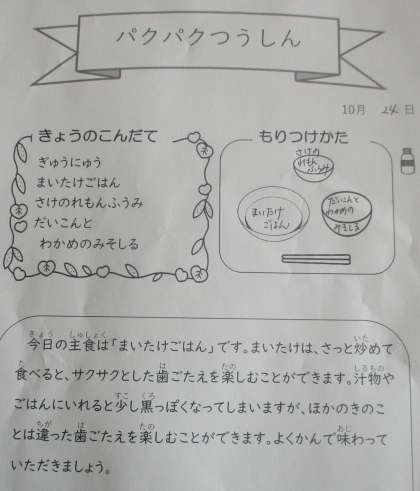 パクパクつうしん
10月 24日
きょうのこんだて
ぎゅうにゅう
まいたけごはん
さけのれもんふうみ
だいこんと
わかめのみそしる
もりつけかた
さけの
れもん
ふうみ
まいたけ
ごはん
だいこんと
わかめの
みそしる
今日の主食は「まいたけごはん」です。まいたけは、さっと炒めて
食べると、サクサクとした歯ごたえを楽しむことができます。汁物や
ごはんにいれると少し黒っぽくなってしまいますが、ほかのきのこ
とは違った歯ごたえを楽しむことができます。よくかんで味わって
いただきましょう。